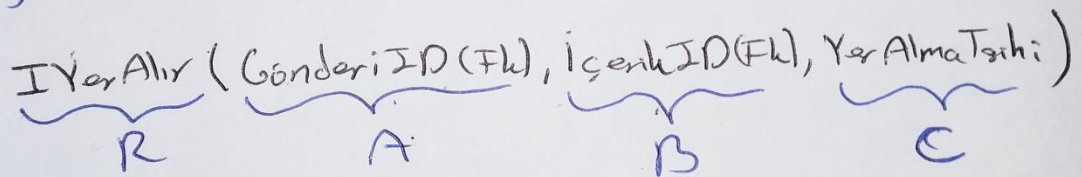 IYerAlır (GönderiID(Fk), İçerikID(Fk), YerAlmaTarihi)
R A B C